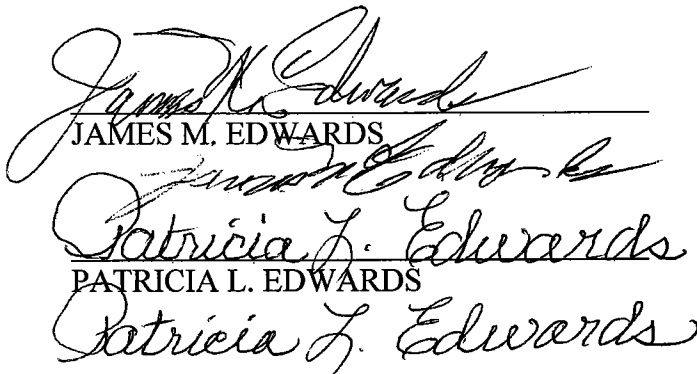 James M. Edwards
JAMES M. EDWARDS
James M Edwards
Patricia L. Edwards
PATRICIA L. EDWARDS
Patricia L. Edwards